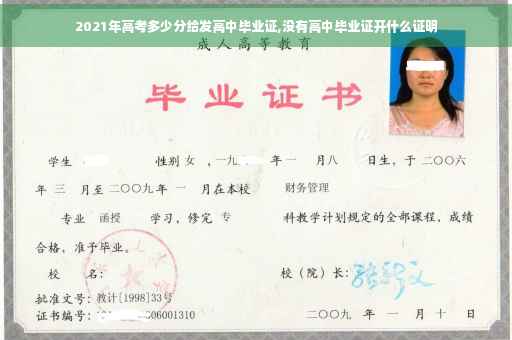 2021年高考多少分给发高中毕业证,没有高中毕业证开什么证明
成人高等教育
毕业证书
学生 性别 女 ,一九 年一 月八 日生,于二〇〇六
年 三 月至二〇〇九年 一 月在本校 财务管理
专业 函授 学习,修完 专 科教学计划规定的全部课程,成绩
合格,准予毕业。
校 名: 校(院)长:
批准文号:教计[1998]33号
证书编号: 06001310 二〇〇九 年 一 月 十 日